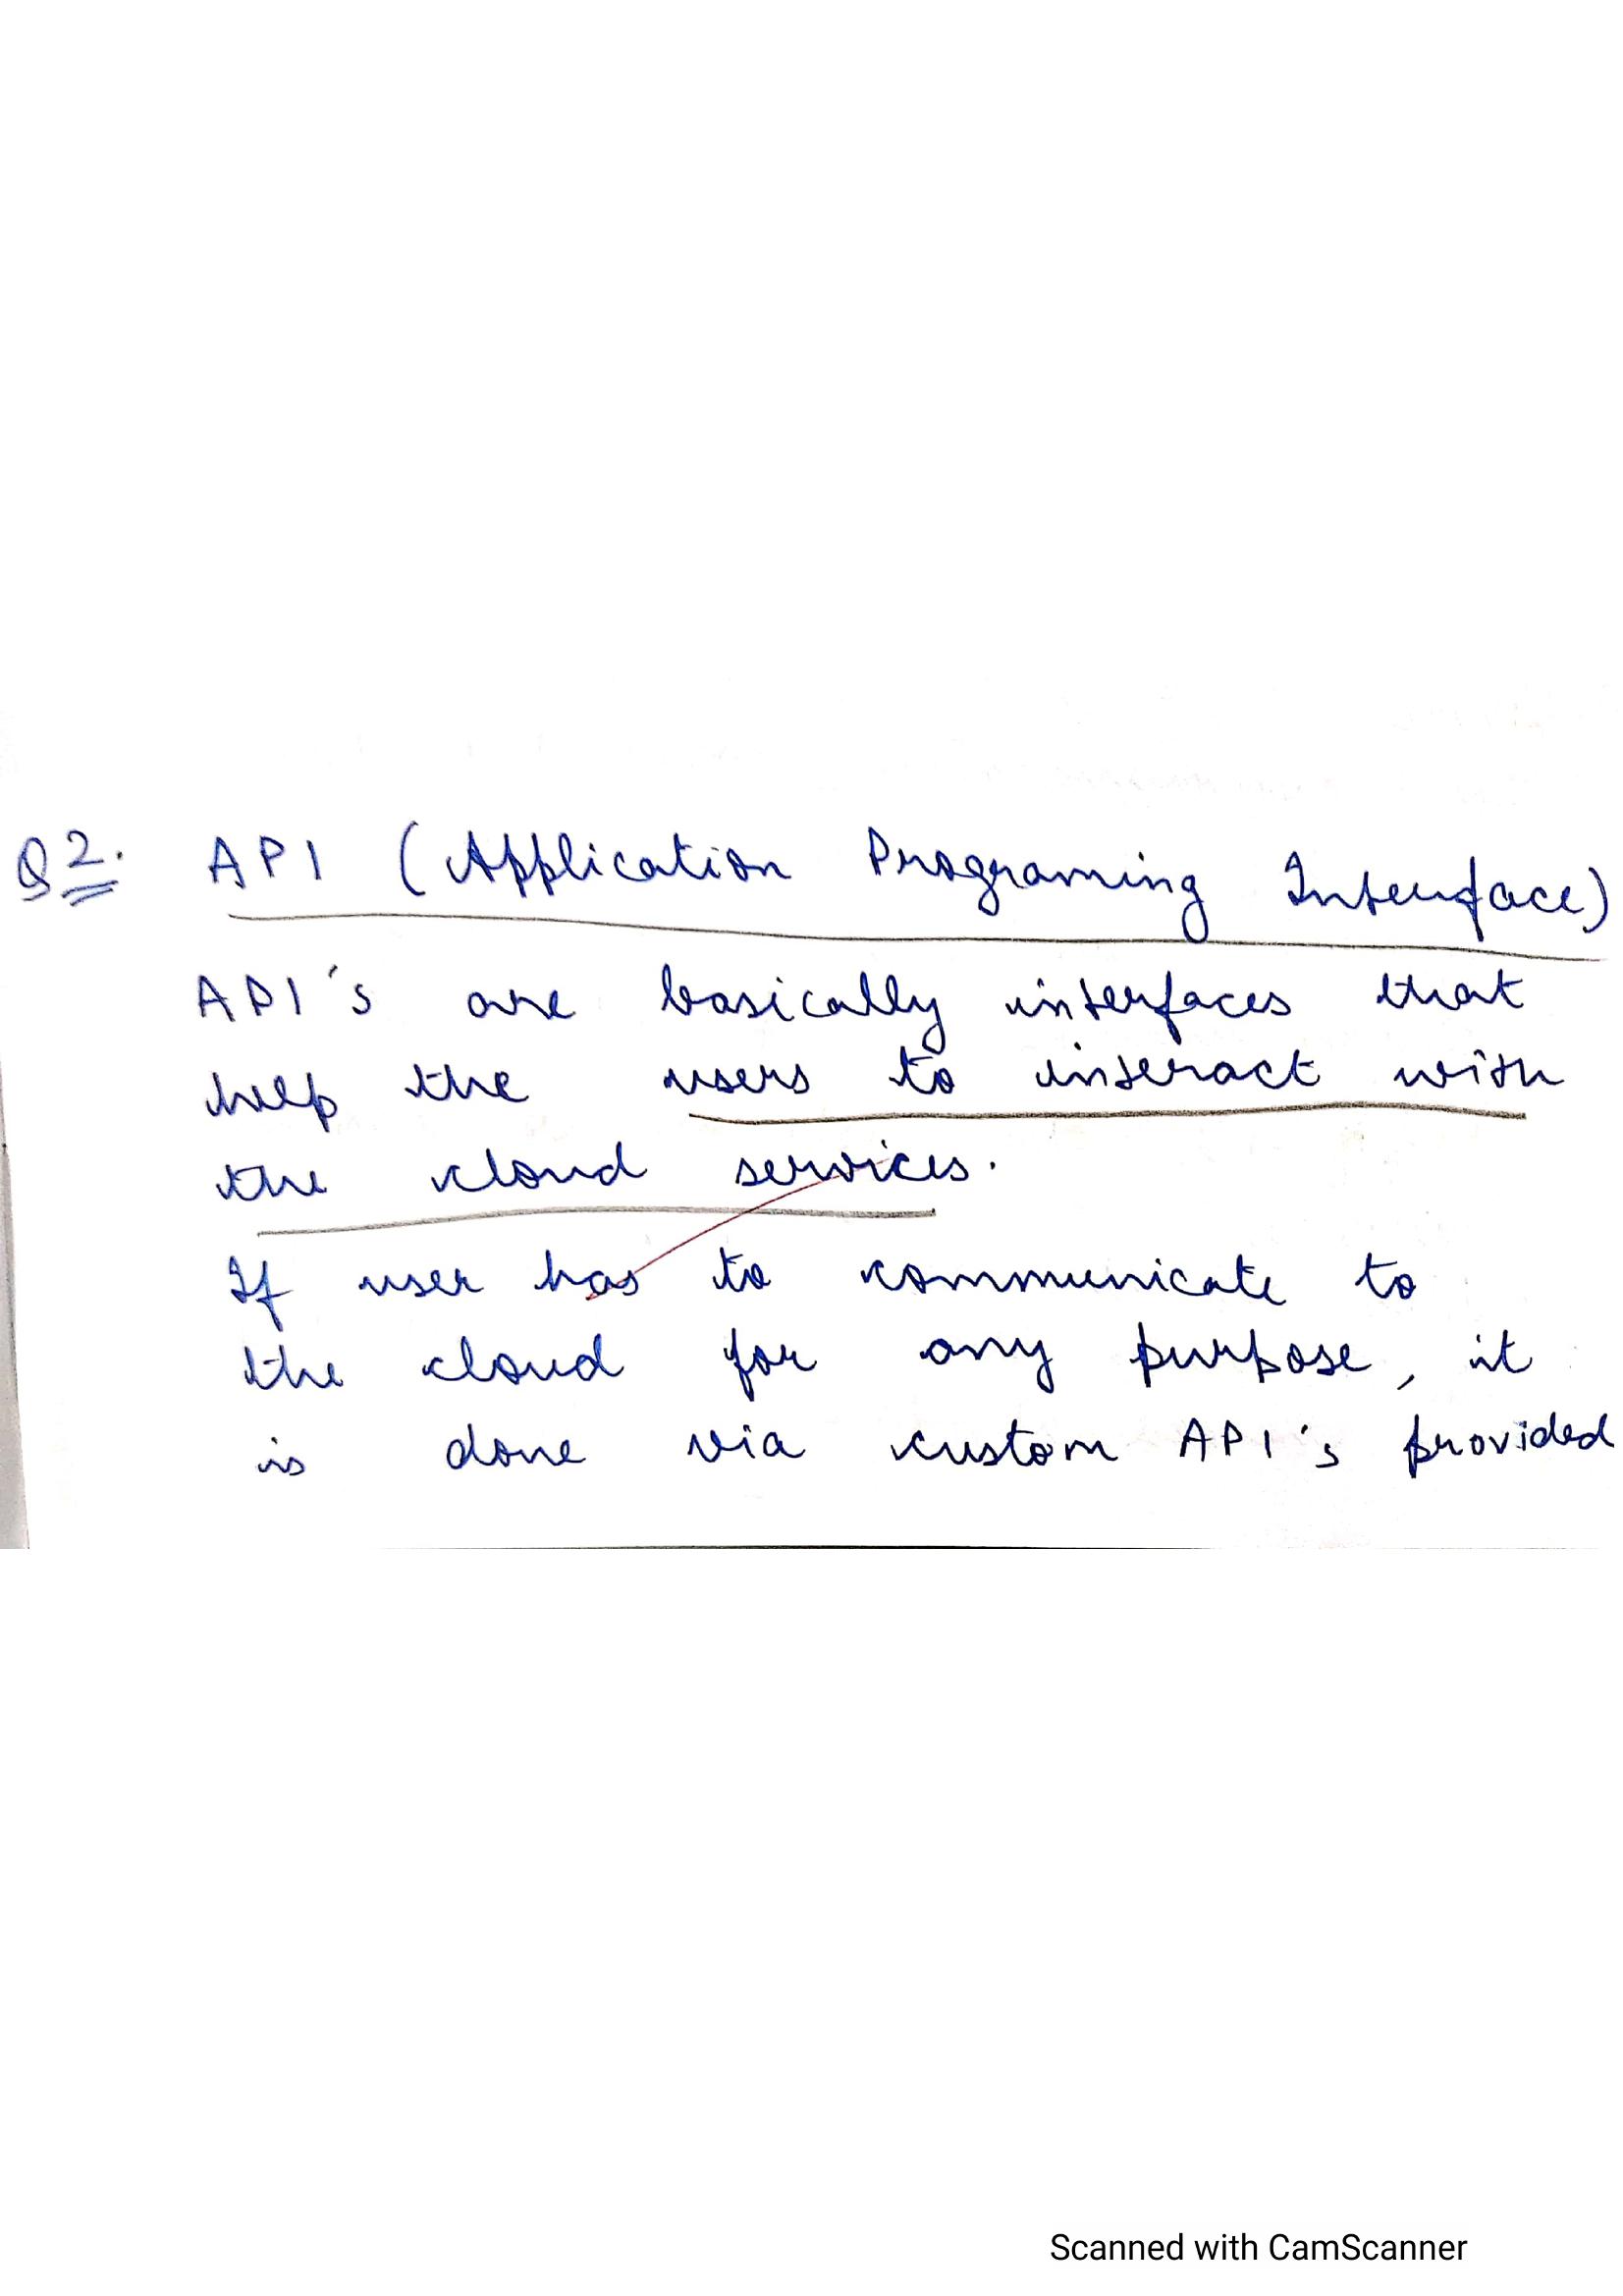 Q2. API (Application Programing Interface)
API's are basically interfaces that
help the users to interact with
the cloud services.
If user has to communicate to
the cloud for any purpose, it
is done via custom API's provided
Scanned with CamScanner